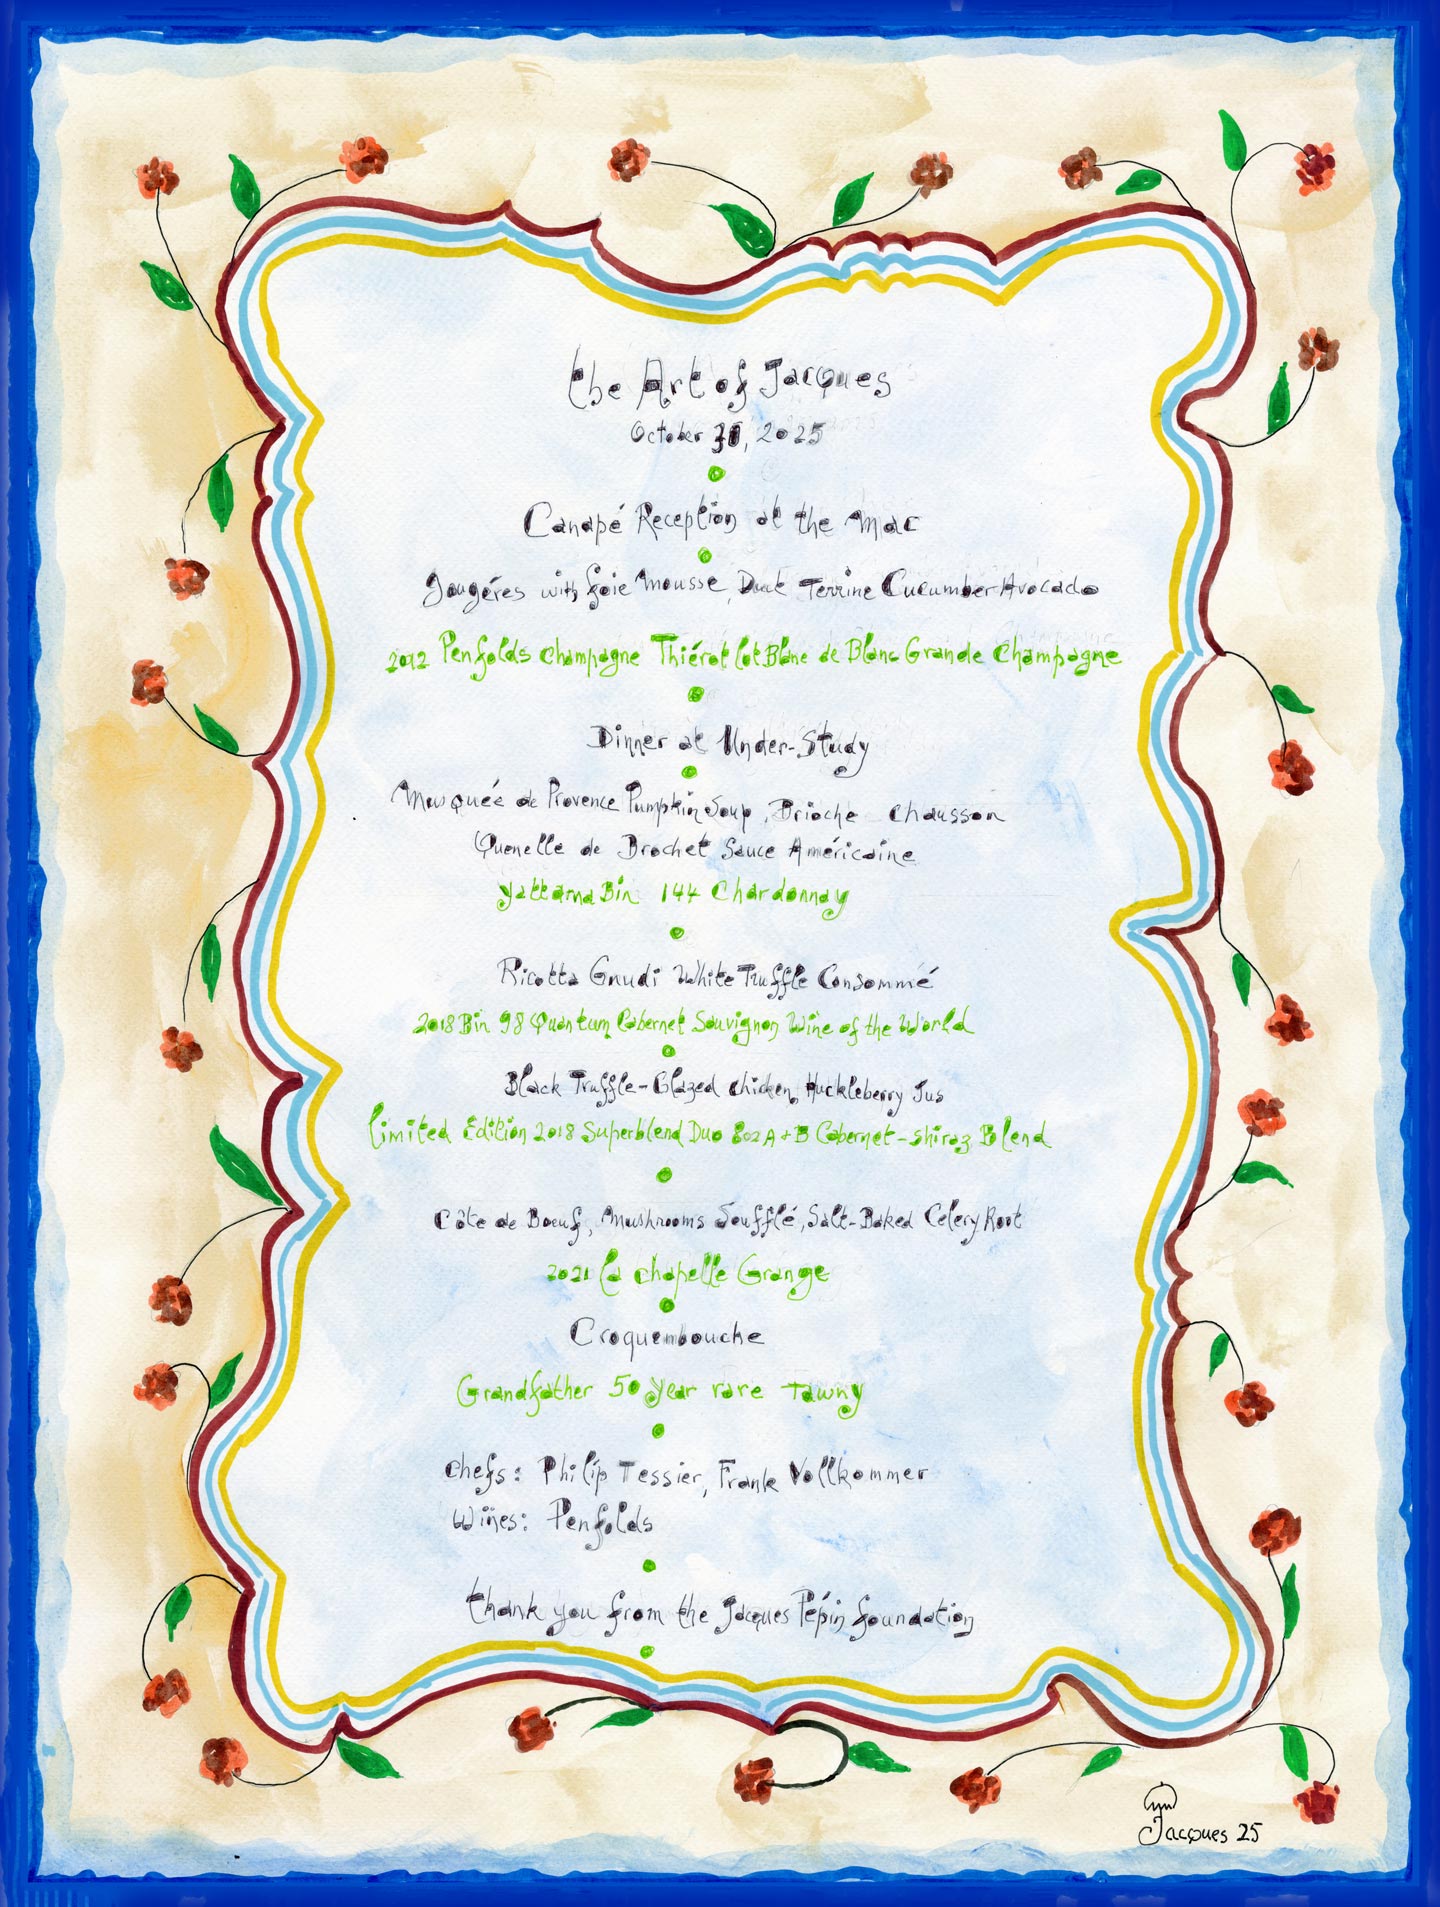 the Art of Jacques
October 30, 2025
Canapé Reception at the Mac
Gougéres with foie Mousse, Duck Terrine Cucumber Avocado
2012 Penfolds Champagne Thiénot lot Blanc de Blanc Grande Champagne
Dinner at Under-Study
Musquée de Provence Pumpkin Soup, Brioche Chausson
Quenelle de Brochet Sauce Américaine
Yattarna Bin 144 Chardonnay
Ricotta Gnudi White Truffle Consommé
2018 Bin 98 Quantum Cabernet Sauvignon Wine of the World
Black Truffle-Glazed chicken, Huckleberry Jus
limited Edition 2018 Superblend Duo 802 A+B Cabernet-shiraz Blend
Côte de Boeuf, Mushrooms Soufflé, Salt-Baked Celery Root
2021 la chapelle Grange
Croquembouche
Grandfather 50 year rare Tawny
chefs: Philip Tessier, Frank Vollkommer
Wines: Penfolds
thank you from the Jacques Pépin foundation
Jacques 25